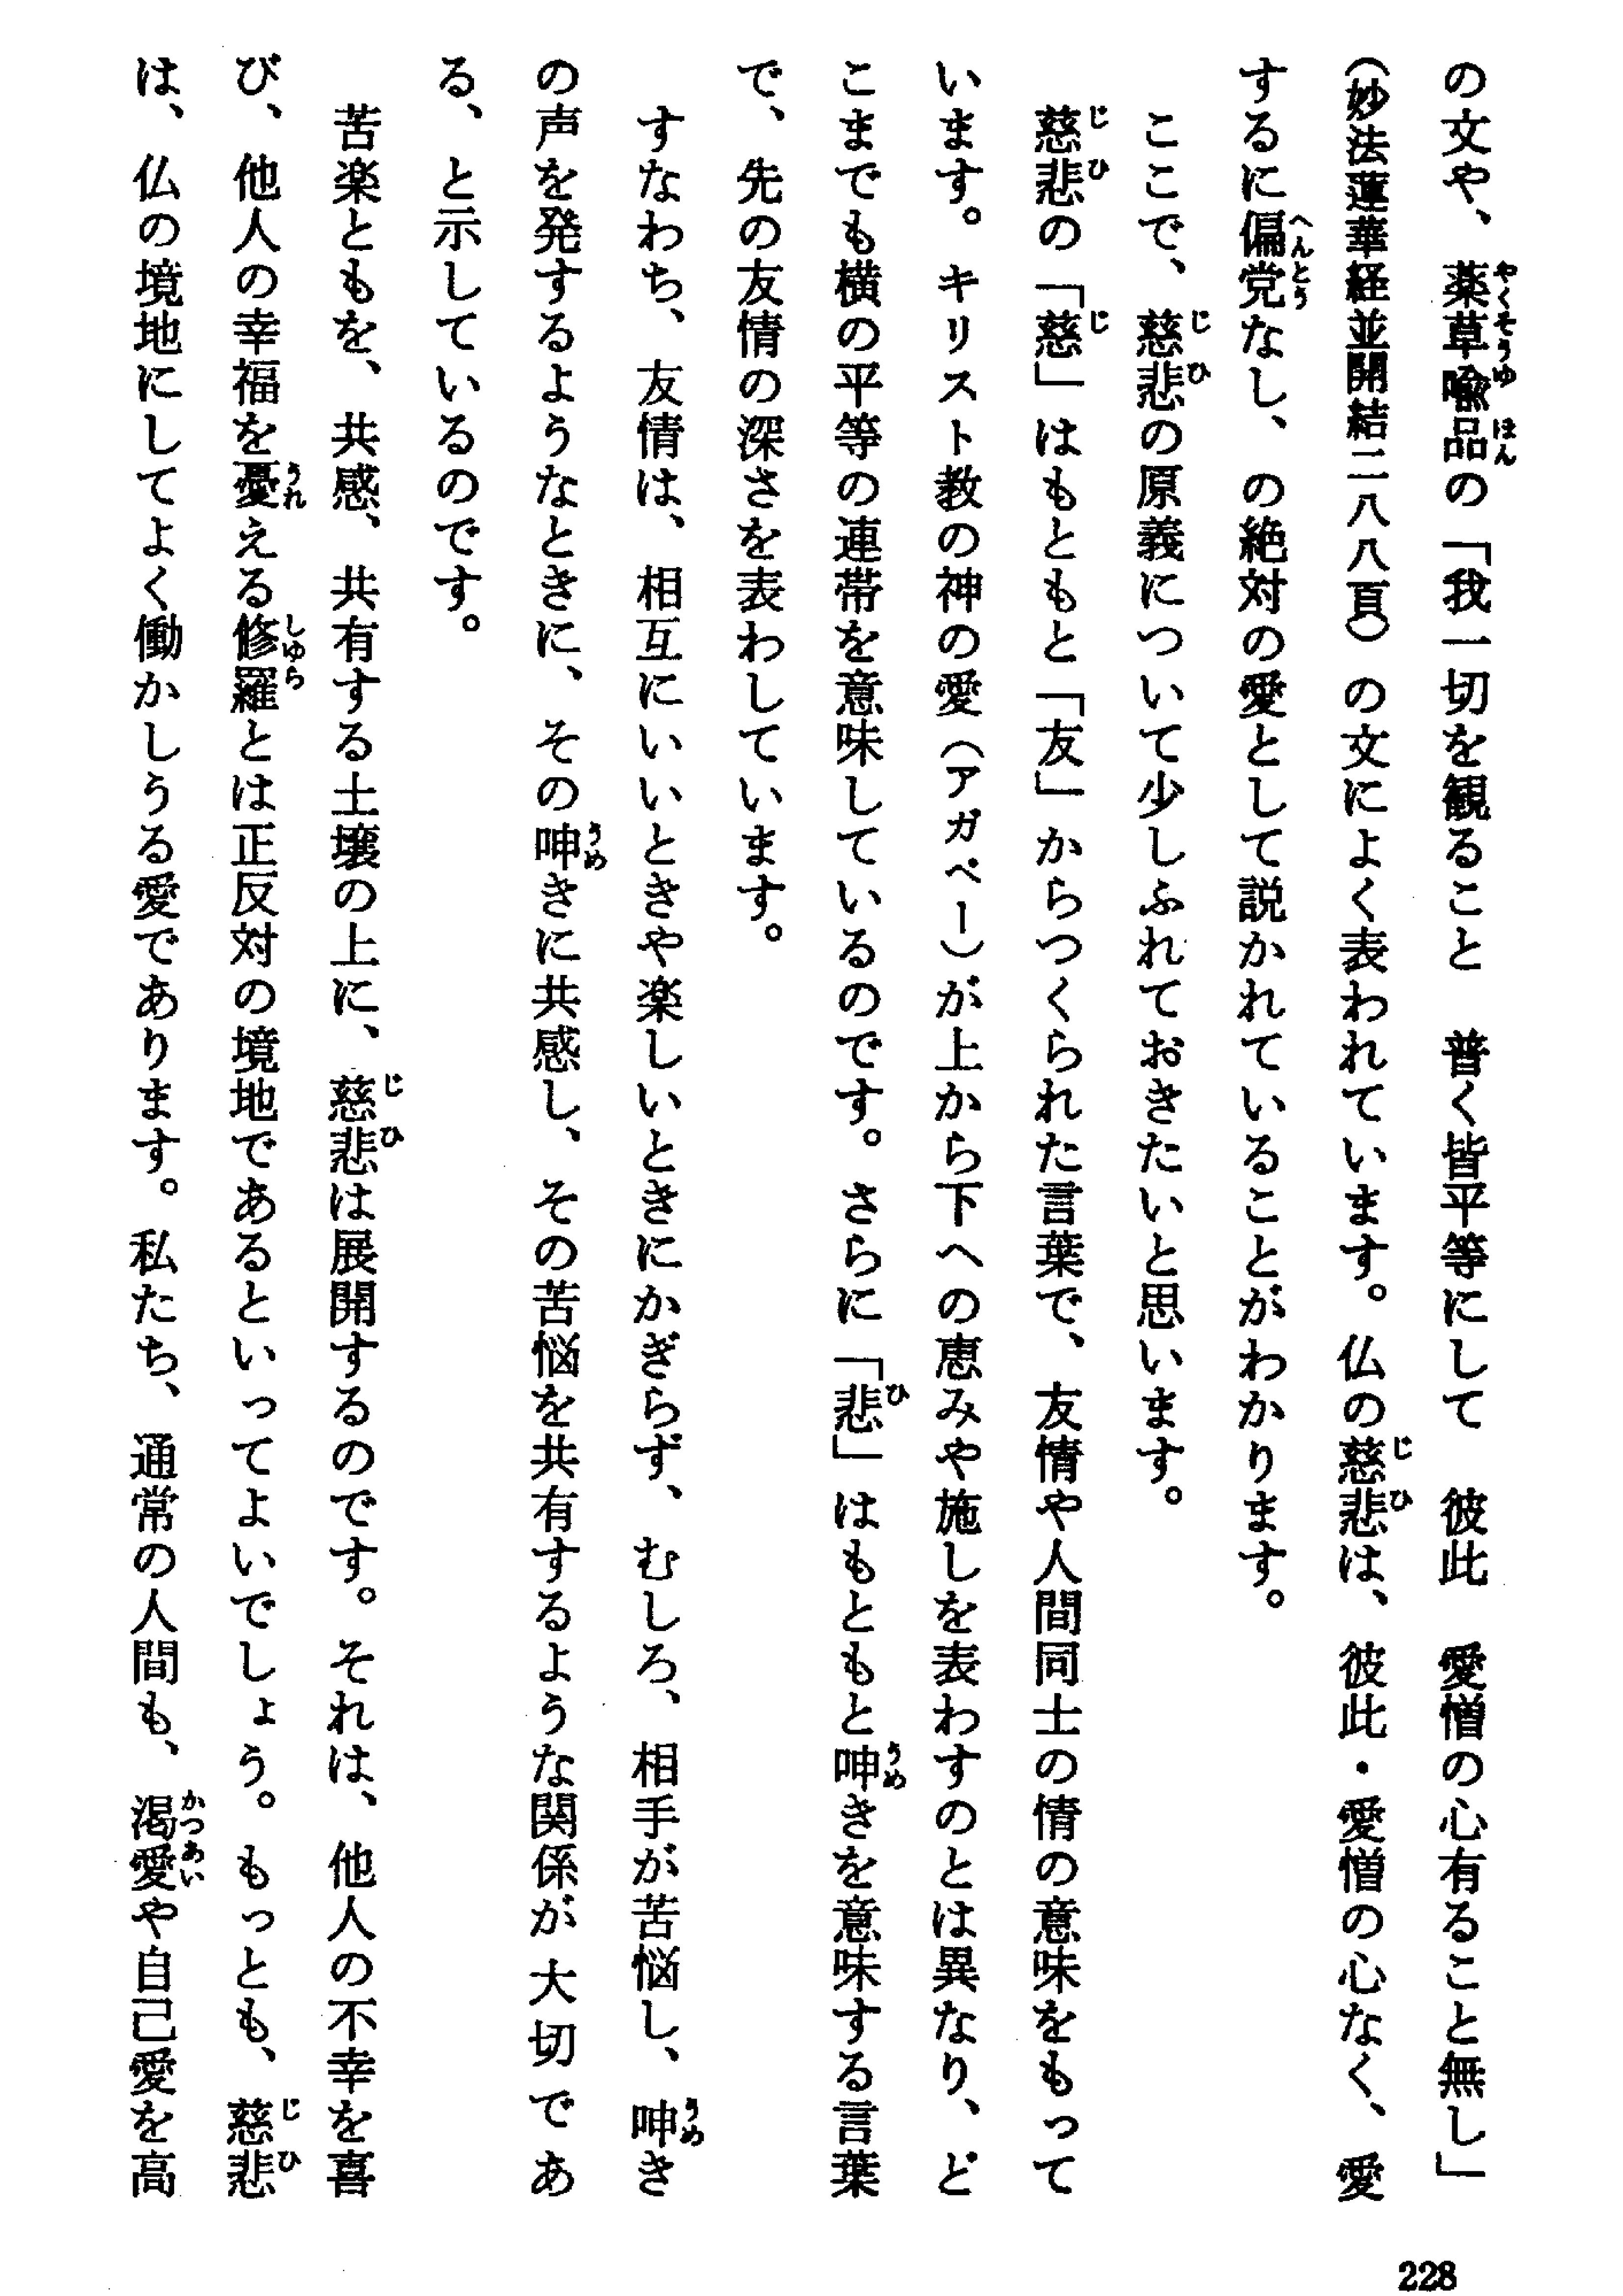 の文や、薬草喩品の「我一切を観ること　普く皆平等にして　彼此　愛憎の心有ること無し」
（妙法蓮華経並開結二八八頁）の文によく表われています。仏の慈悲は、彼此・愛憎の心なく、愛
するに偏党なし、の絶対の愛として説かれていることがわかります。
　ここで、慈悲の原義について少しふれておきたいと思います。
　慈悲の「慈」はもともと「友」からつくられた言葉で、友情や人間同士の情の意味をもって
います。キリスト教の神の愛（アガペー）が上から下への恵みや施しを表わすのとは異なり、ど
こまでも横の平等の連帯を意味しているのです。さらに「悲」はもともと呻きを意味する言葉
で、先の友情の深さを表わしています。
　すなわち、友情は、相互にいいときや楽しいときにかぎらず、むしろ、相手が苦悩し、呻き
の声を発するようなときに、その呻きに共感し、その苦悩を共有するような関係が大切であ
る、と示しているのです。
　苦楽ともを、共感、共有する土壌の上に、慈悲は展開するのです。それは、他人の不幸を喜
び、他人の幸福を憂える修羅とは正反対の境地であるといってよいでしょう。もっとも、慈悲
は、仏の境地にしてよく働かしうる愛であります。私たち、通常の人間も、渇愛や自己愛を高
228